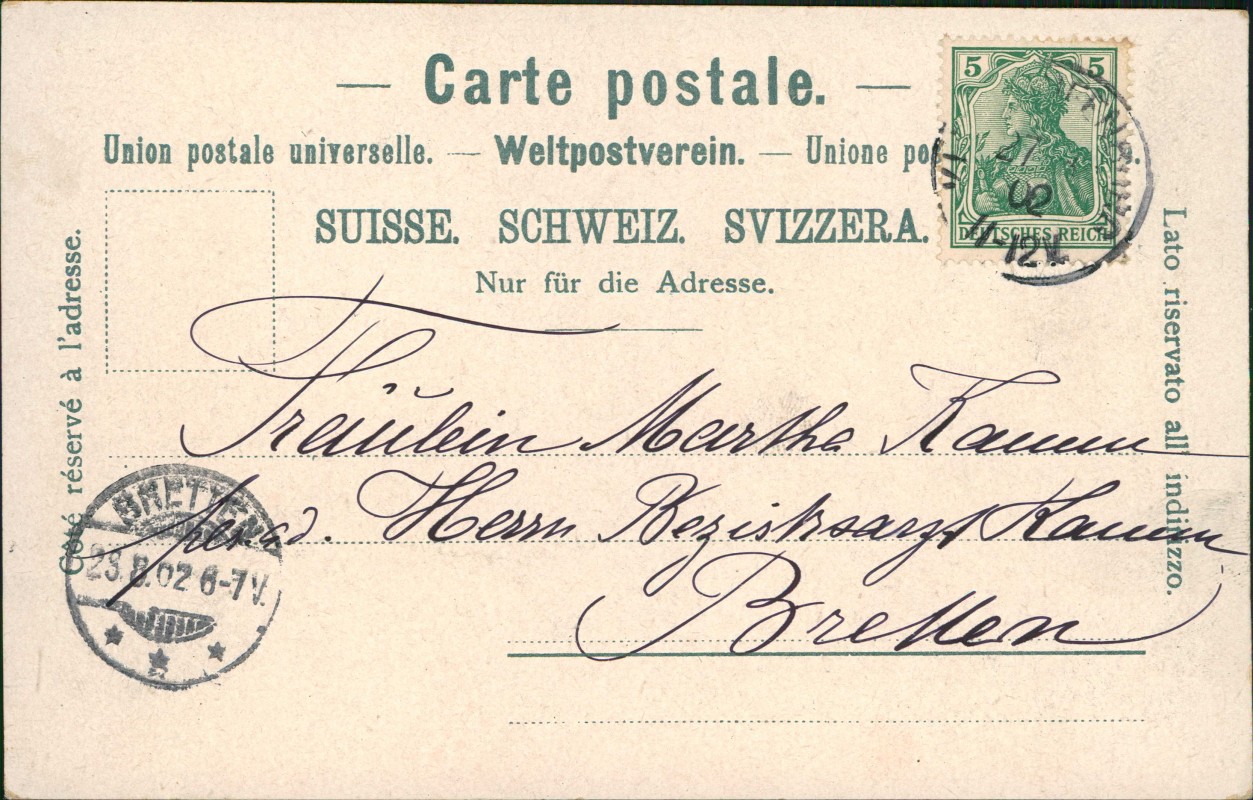 — Carte postale. —
Union postale universelle. — Weltpostverein. — Unione po
SUISSE. SCHWEIZ. SVIZZERA.
Nur für die Adresse.
Côté réservé à l'adresse.
Lato riservato all' indirizzo.
5 5
DEUTSCHES REICH
27
02
11-12V.
Fräulein Martha Kamm
Herrn Bezirksarzt Kamm
Bretten
BRETTEN
28.8.02 6-7V.